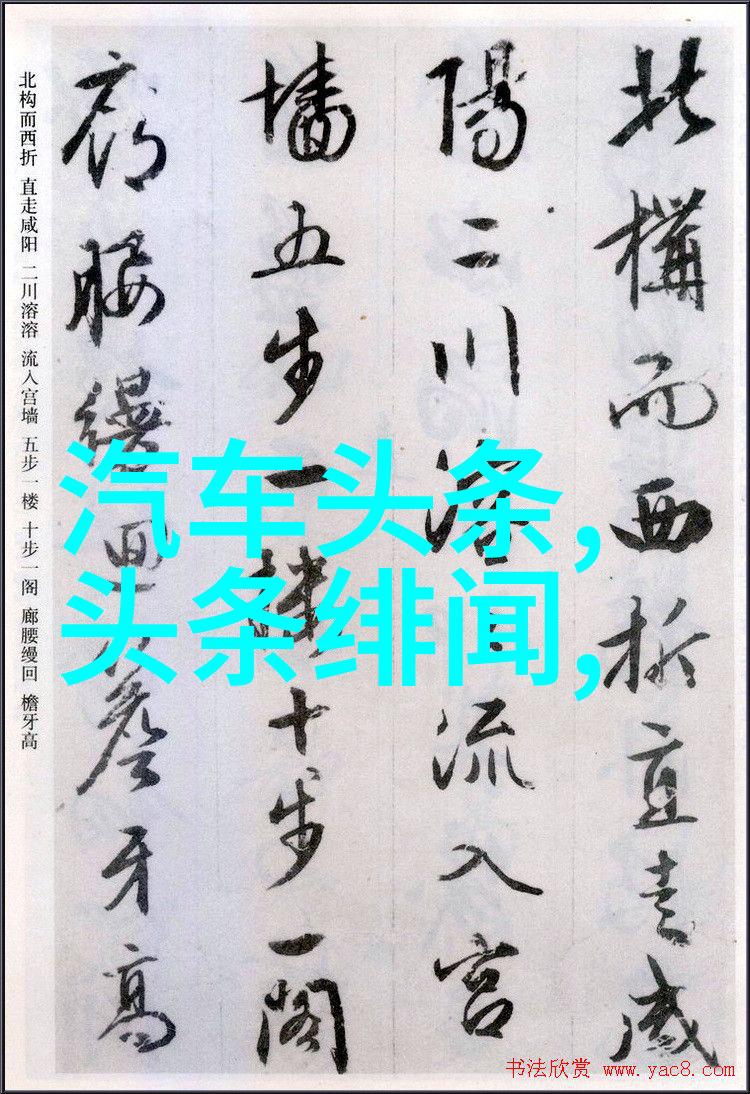 北構而西折直走咸
陽二川溶〻流入宫
墙五步一楼十步一閣
廊腰缦迴簷牙高
北构而西折 直走咸阳 二川溶溶 流入宫墙 五步一楼 十步一阁 廊腰缦回 檐牙高
汽车头条,
头条绯闻,
书法欣赏 www.yac8.com